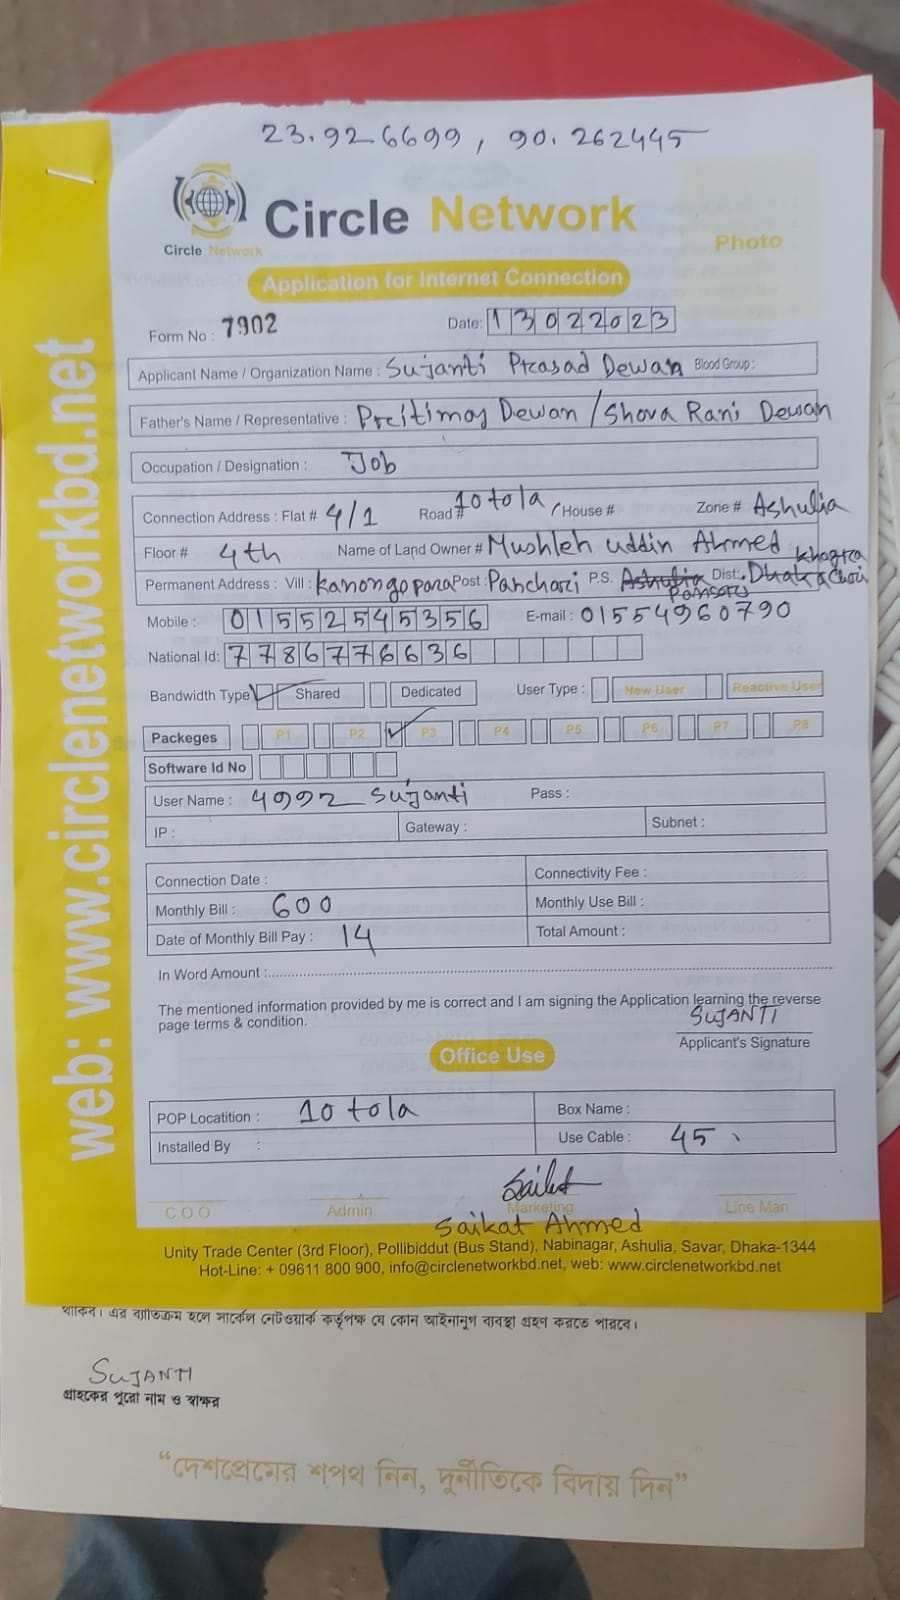 23.926699, 90.262445
Circle Network
Circle Network
Photo
Application for Internet Connection
Form No : 7902
Date: 13022023
Applicant Name / Organization Name : Sujanti Prasad Dewan Blood Group :
Father's Name / Representative : Preitimoy Dewan / Shova Rani Dewan
Occupation / Designation : Job
Connection Address : Flat # 4/1 Road # 10 tola / House # Zone # Ashulia
Floor # 4th Name of Land Owner # Mushleh uddin Ahmed
Permanent Address : Vill : kanongopara Post : Panchari P.S. Ashulia Pansory Dist: Dhaka khagra Chori
Mobile : 01552545356 E-mail : 01554960790
National Id: 7786776636
Bandwidth Type Shared Dedicated User Type : New User Reactive User
Packeges P1 P2 P3 P4 P5 P6 P7 P8
Software Id No
User Name : 4992 sujanti Pass :
IP : Gateway : Subnet :
Connection Date : Connectivity Fee :
Monthly Bill : 600 Monthly Use Bill :
Date of Monthly Bill Pay : 14 Total Amount :
In Word Amount :
The mentioned information provided by me is correct and I am signing the Application learning the reverse
page terms & condition.
SUJANTI
Applicant's Signature
Office Use
POP Locatition : 10 tola Box Name :
Installed By : Use Cable : 45
Saikat
C.O.O Admin Marketing Line Man
Saikat Ahmed
Unity Trade Center (3rd Floor), Pollibiddut (Bus Stand), Nabinagar, Ashulia, Savar, Dhaka-1344
Hot-Line: + 09611 800 900, info@circlenetworkbd.net, web: www.circlenetworkbd.net
web: www.circlenetworkbd.net
থাকিব। এর ব্যতিক্রম হলে সার্কেল নেটওয়ার্ক কর্তৃপক্ষ যে কোন আইনানুগ ব্যবস্থা গ্রহণ করতে পারবে।
SUJANTI
গ্রাহকের পুরো নাম ও স্বাক্ষর
“দেশপ্রেমের শপথ নিন, দুর্নীতিকে বিদায় দিন”